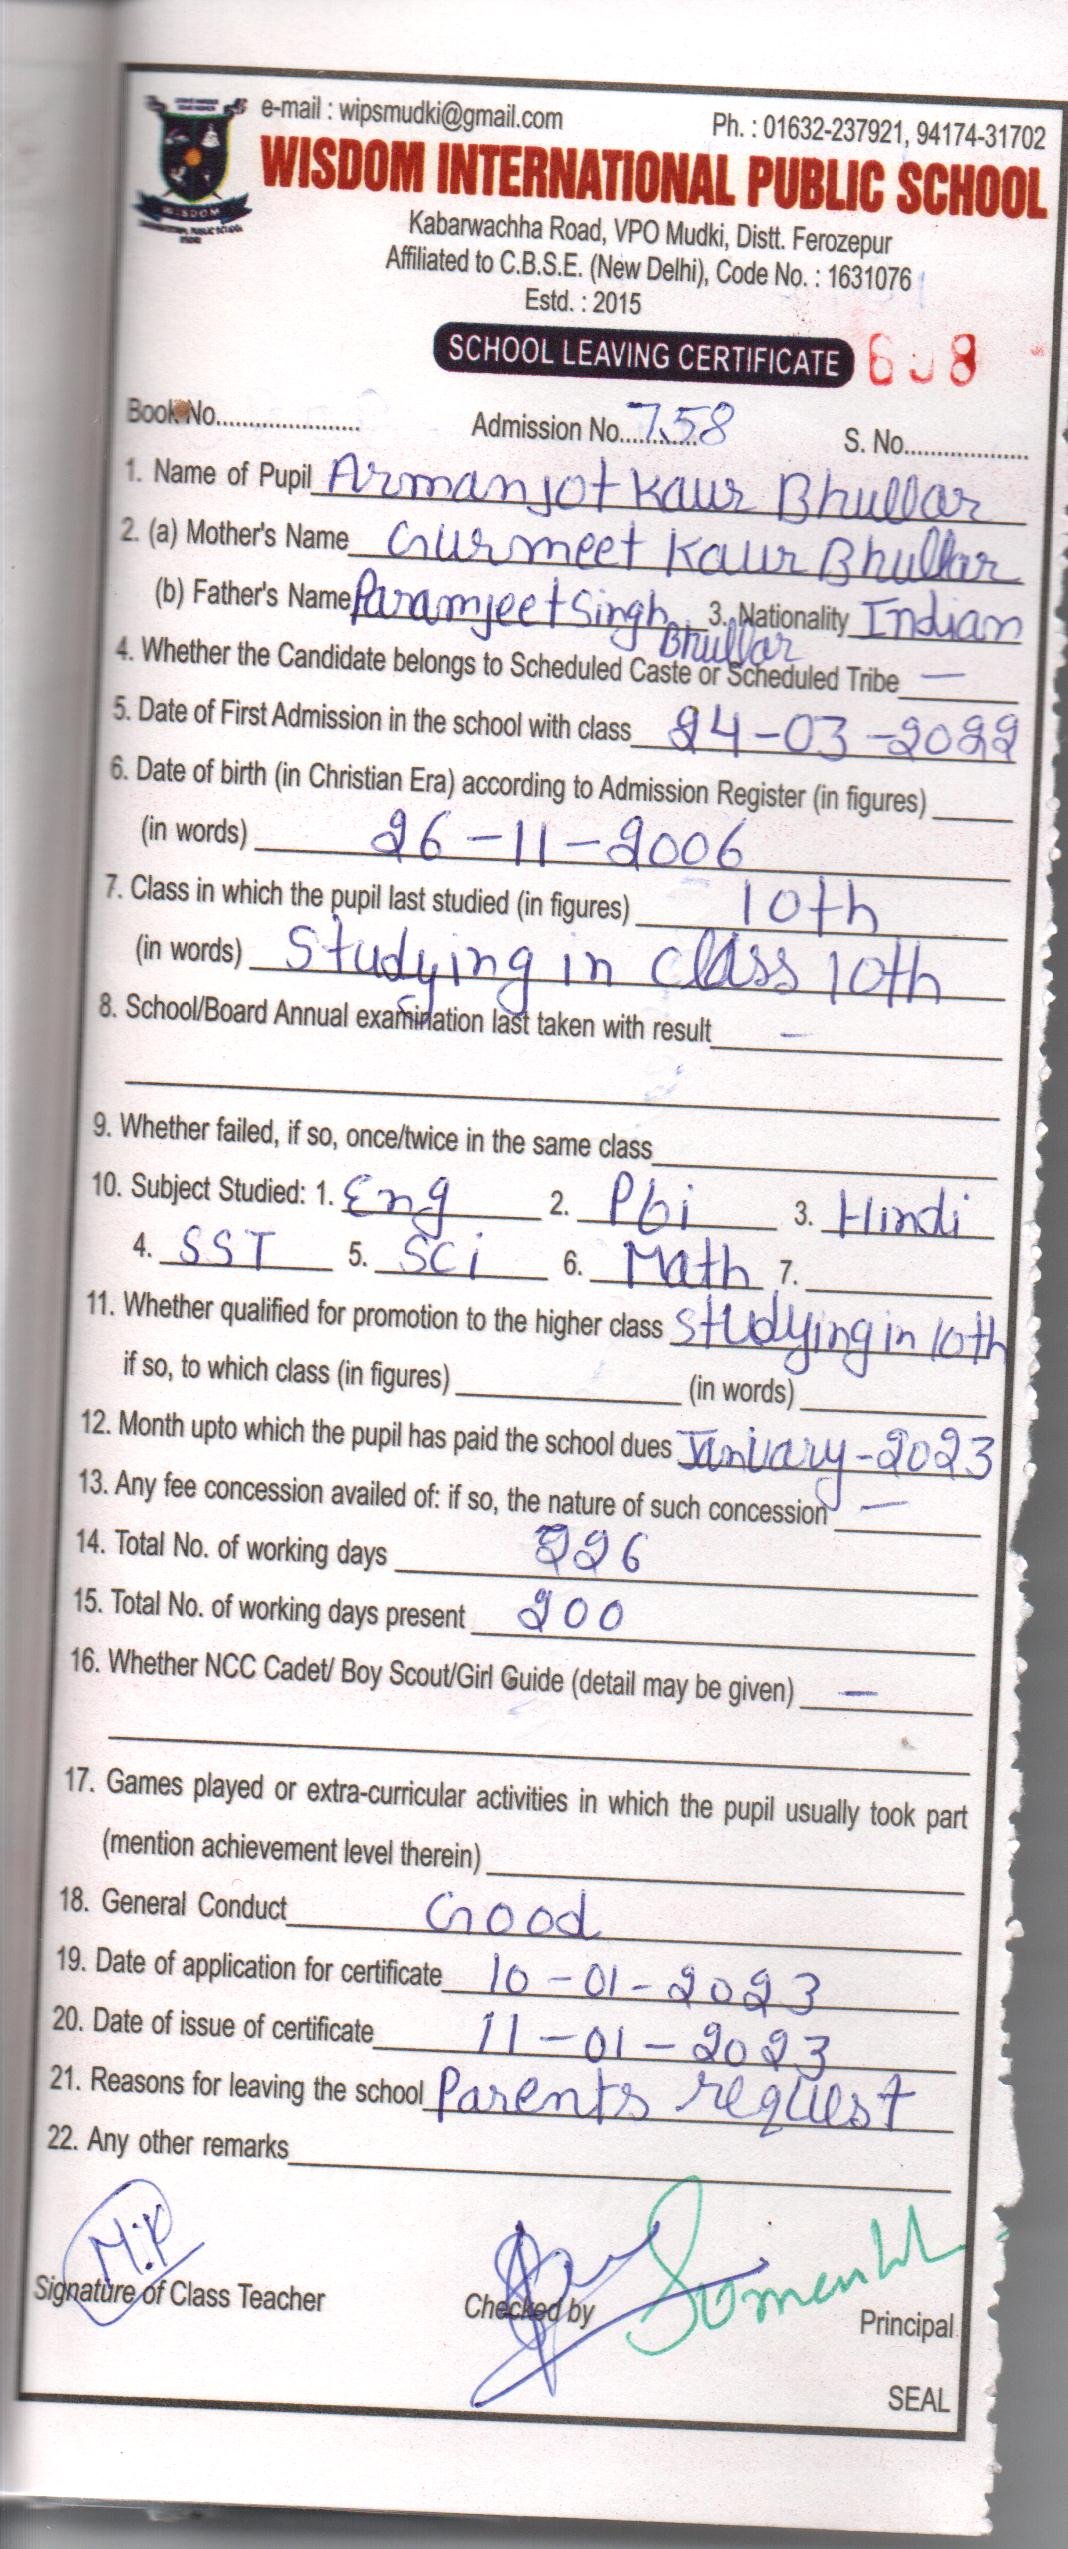 e-mail : wipsmudki@gmail.com Ph. : 01632-237921, 94174-31702
WISDOM INTERNATIONAL PUBLIC SCHOOL
WISDOM
Kabarwachha Road, VPO Mudki, Distt. Ferozepur
Affiliated to C.B.S.E. (New Delhi), Code No. : 1631076
Estd. : 2015
SCHOOL LEAVING CERTIFICATE
Book No...................... Admission No. 758 S. No...................
1. Name of Pupil Armanjot Kaur Bhullar
2. (a) Mother's Name Gurmeet Kaur Bhullar
(b) Father's Name Paramjeet Singh Bhullar 3. Nationality Indian
4. Whether the Candidate belongs to Scheduled Caste or Scheduled Tribe —
5. Date of First Admission in the school with class 24-03-2022
6. Date of birth (in Christian Era) according to Admission Register (in figures)
(in words) 26-11-2006
7. Class in which the pupil last studied (in figures) 10th
(in words) Studying in class 10th
8. School/Board Annual examination last taken with result –
9. Whether failed, if so, once/twice in the same class
10. Subject Studied: 1. Eng 2. Pbi 3. Hindi
4. SST 5. SCi 6. Math 7.
11. Whether qualified for promotion to the higher class studying in 10th
if so, to which class (in figures) (in words)
12. Month upto which the pupil has paid the school dues January-2023
13. Any fee concession availed of: if so, the nature of such concession —
14. Total No. of working days 226
15. Total No. of working days present 200
16. Whether NCC Cadet/ Boy Scout/Girl Guide (detail may be given) —
17. Games played or extra-curricular activities in which the pupil usually took part
(mention achievement level therein)
18. General Conduct Good
19. Date of application for certificate 10-01-2023
20. Date of issue of certificate 11-01-2023
21. Reasons for leaving the school Parents request
22. Any other remarks
M.P
Signature of Class Teacher Checked by Principal
SEAL